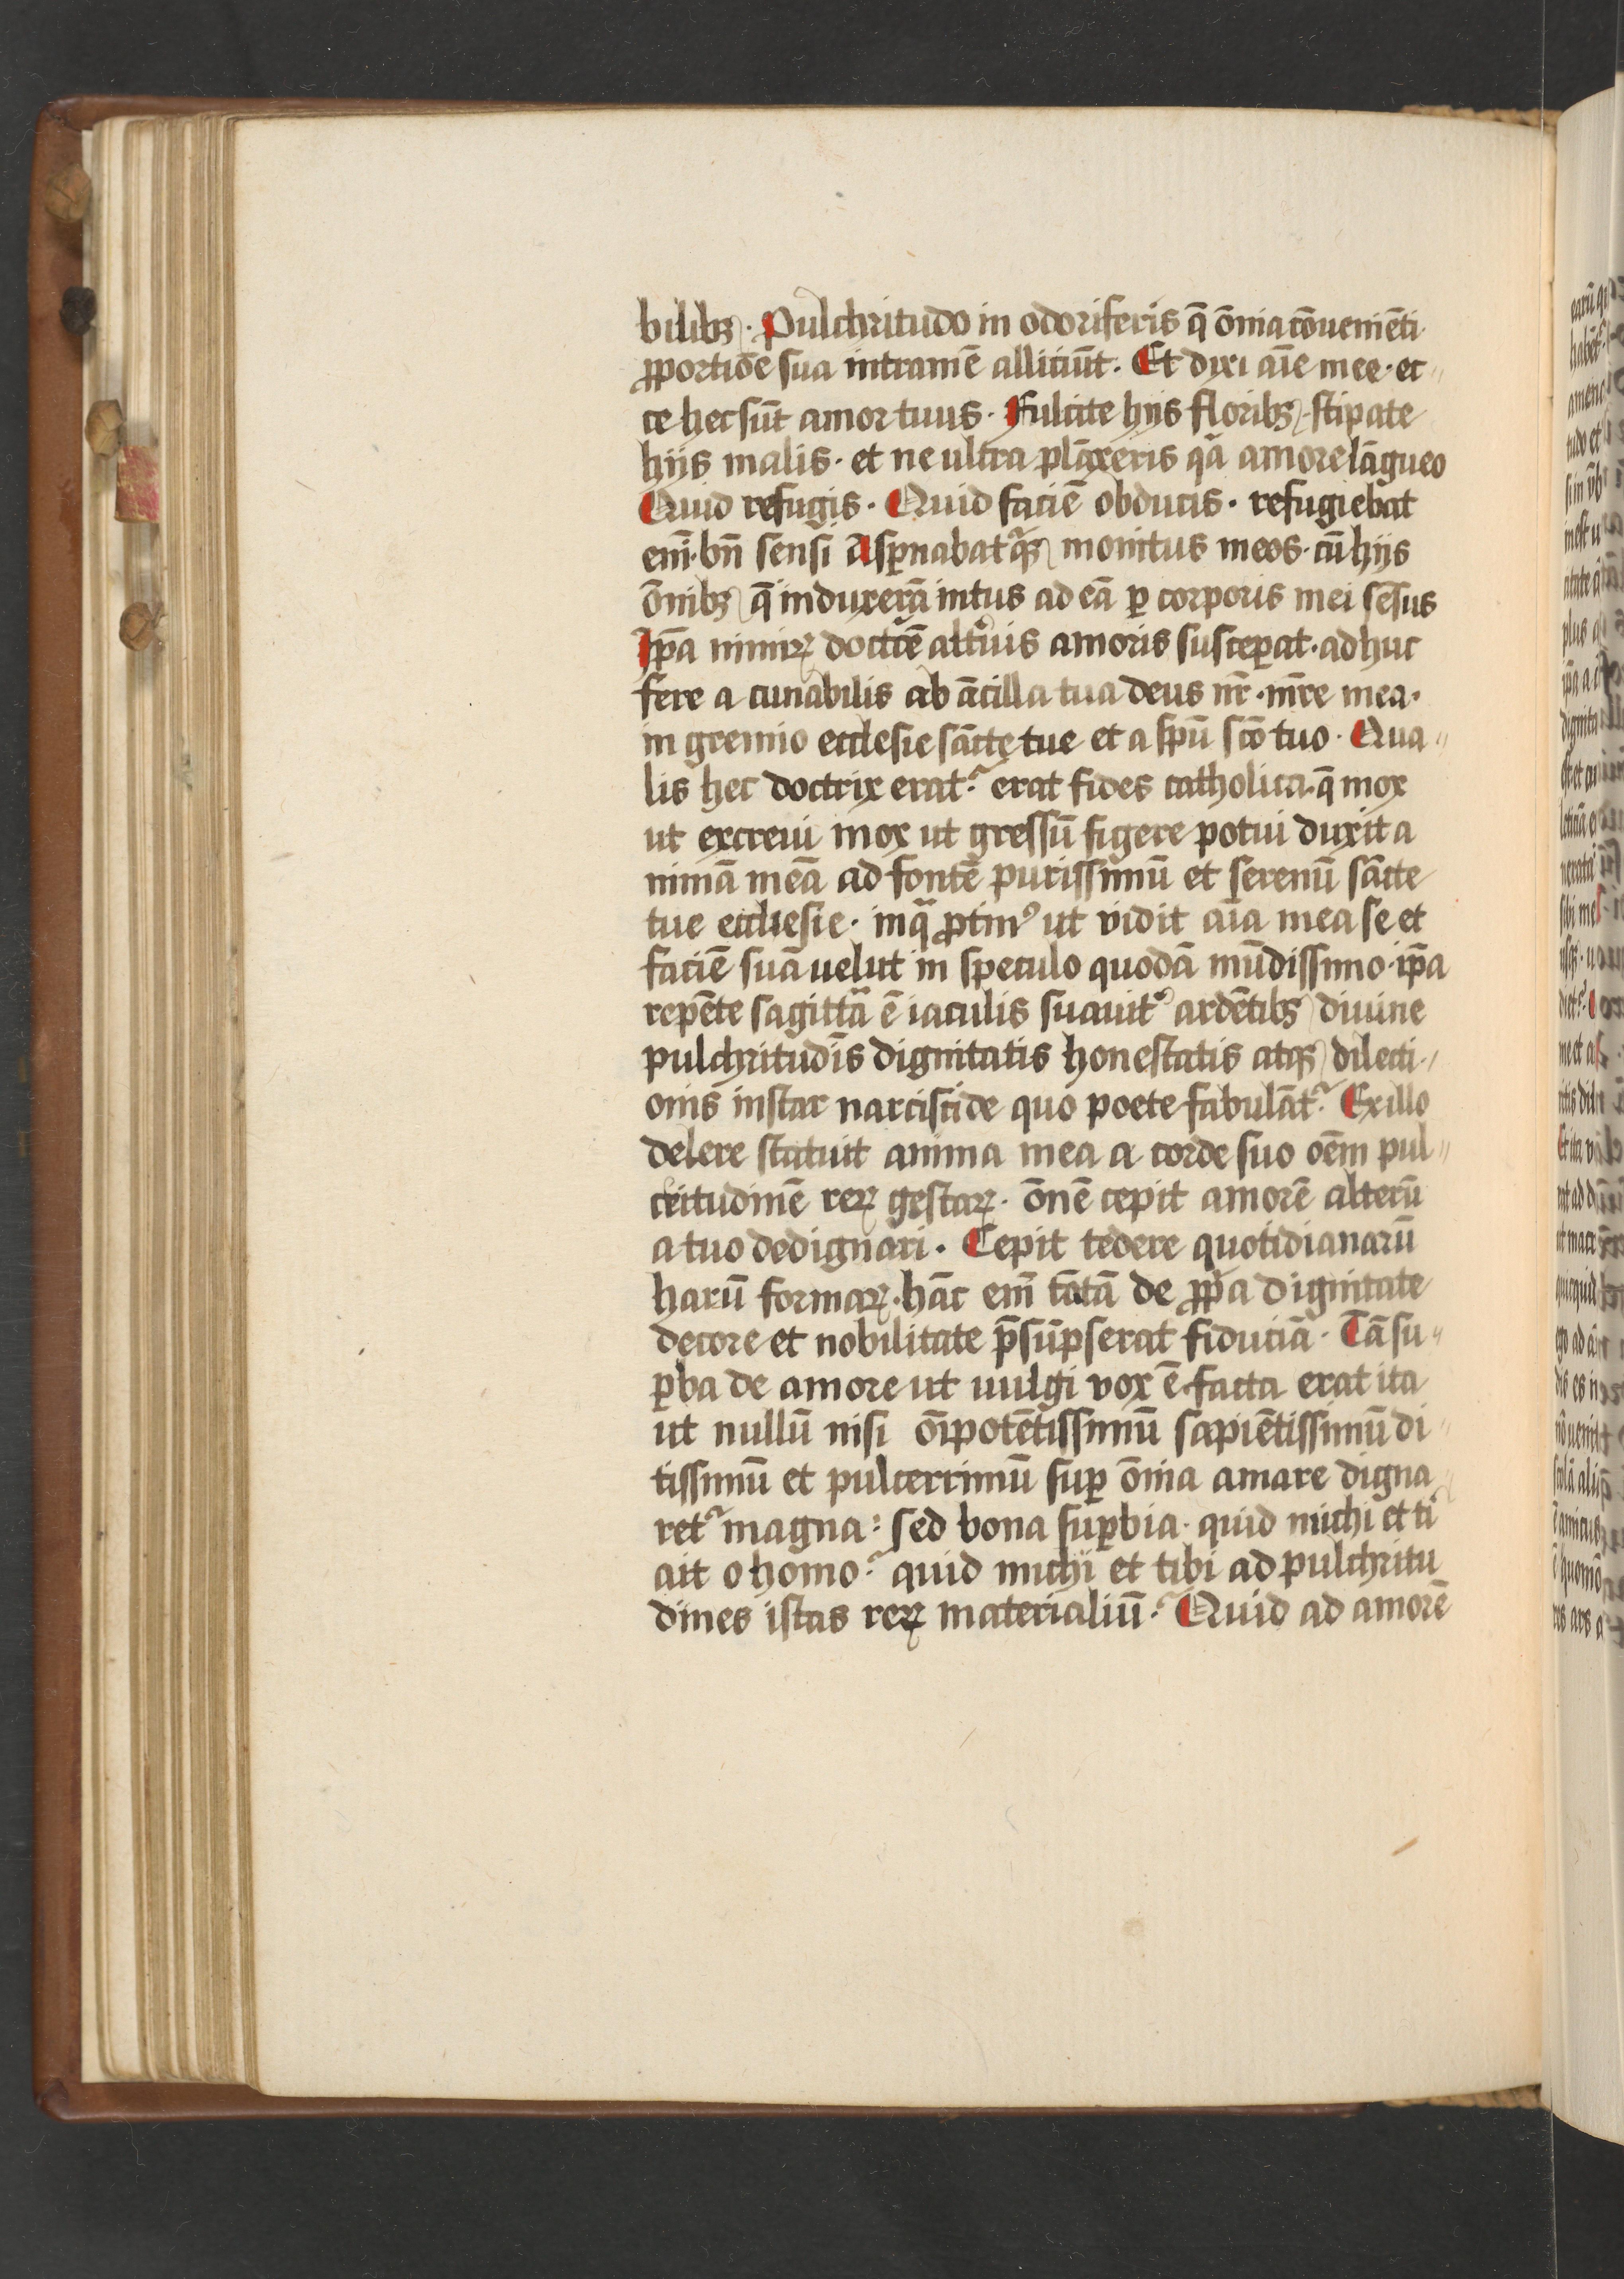 bilibꝫ. Pulchritudo in odoriferis q̄ om̄ia cōueniēti
ꝓportiōe sua intra mē alliciūt. Et dixi aīe mee. ec〃
ce hec sūt amor tuus. Fulcite hijs floribꝫ. stipate
hijs malis. et ne ultra plāxeris qā amore lāgueo
Quid refugis. Quid faciē obducis. refugiebat
enī. bn̄ sensi Asꝑnabatqꝫ monitus meos. cū hijs
ōnibꝫ q̄ induxerā intus ad eā ꝑ corporis mei sēsus
Ip̄a nimiꝝ amoris susceꝑat. adhuc
fere a cunabilis ab ācilla tua deus nr̄. mr̄e mea.
in gremio ecclesie sāctę tue et a sp̄ū scō tuo. Qua〃
lis hec doctrix erat? erat fides catholica. q̄ mox
ut excreui mox ut gressū figere potui duxit a
nimā meā ad fontē purissimū et serenū sācte
tue ecclesie. in qᵃ ꝓtinꝰ ut vidit aīa mea se et
faciē suā uelut in speculo quodā mūdissimo. ip̄a
repēte sagittᵃ̄a ē iaculis suauit᷑ ardētibꝫ diuine
pulchritudīs dignitatis honestatis atqꝫ dilecti〃
onis instar narcisci de quo poete fabulāt᷑. Ex illo
delere statuit anima mea a corde suo oēm pul〃
critudinē reꝝ gestaꝝ. ōnē cepit amorē alterū
a tuo dedignari. Cepit tedere quotidianarū
harū formaꝝ. hāc enī tātā de ꝓpͥa dignitate
decore et nobilitate p̄sūpserat fiduciā. Tā su〃
ꝑba de amore ut uulgi vox ē facta erat ita
ut nullū nisi oīpotētissimū sapiētissimū di〃
tissimū et pulcerrimū suꝑ ōnia amare digna
ret᷑ magna: sed bona suꝑbia. quid michi et tͥ
ait o homo? quid michi et tibi ad pulchritu
dines istas reꝝ materialiū? Quid ad amorē